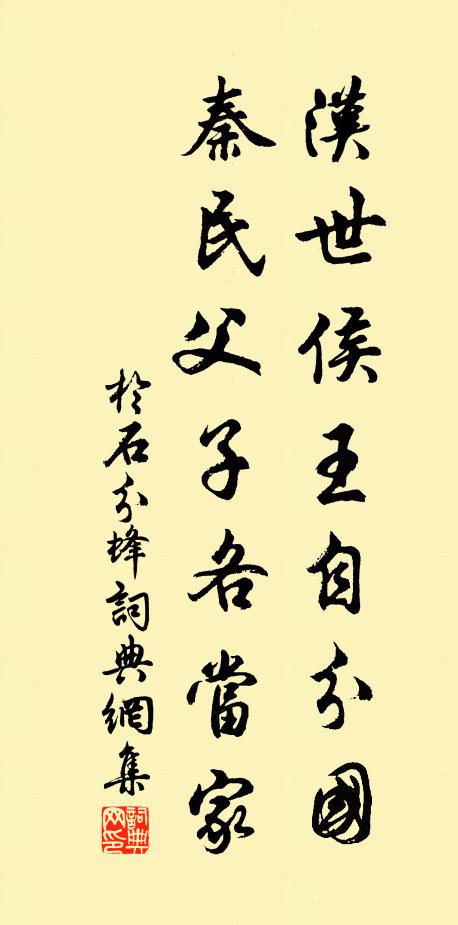 漢世侯王自分國
秦民父子各當家
於石分蜂詞典網集
詞典網印